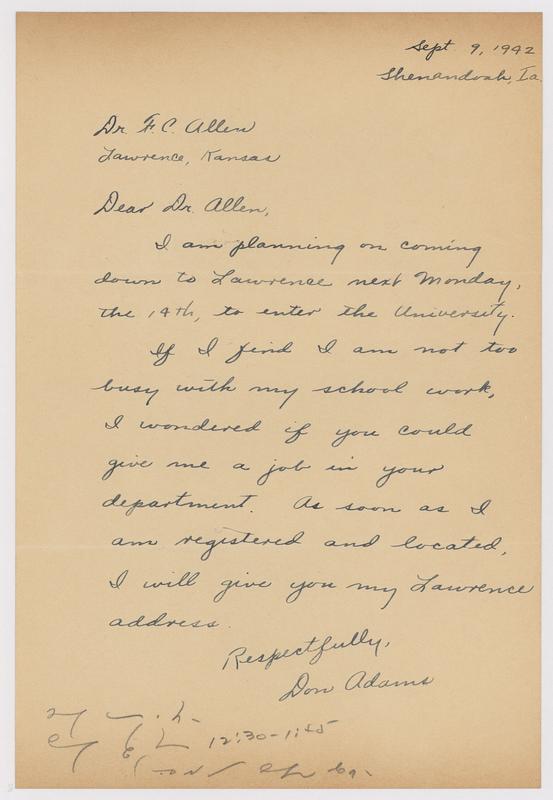 Sept 9, 1942
Shenandoah, Ia.
Dr. F.C. Allen
Lawrence, Kansas
Dear Dr. Allen,
I am planning on coming
down to Lawrence next Monday,
the 14th, to enter the University.
If I find I am not too
busy with my school work,
I wondered if you could
give me a job in your
department. As soon as I
am registered and located,
I will give you my Lawrence
address.
Respectfully,
Don Adams
12:30-1:45